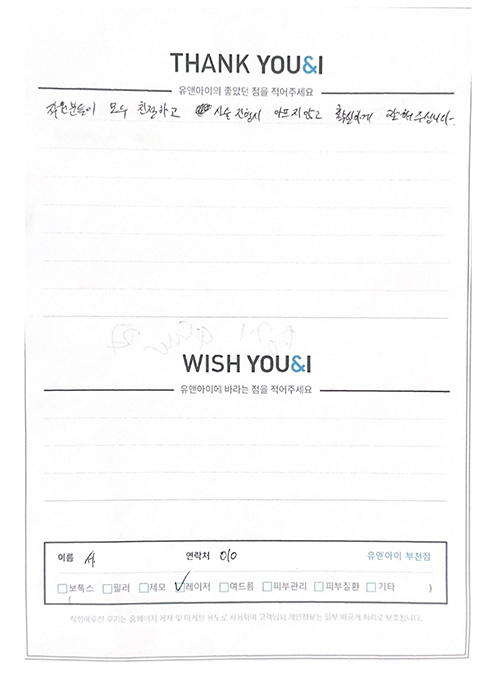 THANK YOU&I
유앤아이의 좋았던 점을 적어주세요
직원분들이 모두 친절하고 시술 진행시 아프지 않고 확실하게 잘 해주십니다.
WISH YOU&I
유앤아이에 바라는 점을 적어주세요
이름 서 연락처 010 유앤아이 부천점
보톡스 필러 제모 레이저 여드름 피부관리 피부질환 기타
( )
작성해주신 후기는 홈페이지 게재 및 마케팅 용도로 사용되며 고객님의 개인정보는 일부 비공개 처리로 보호됩니다.